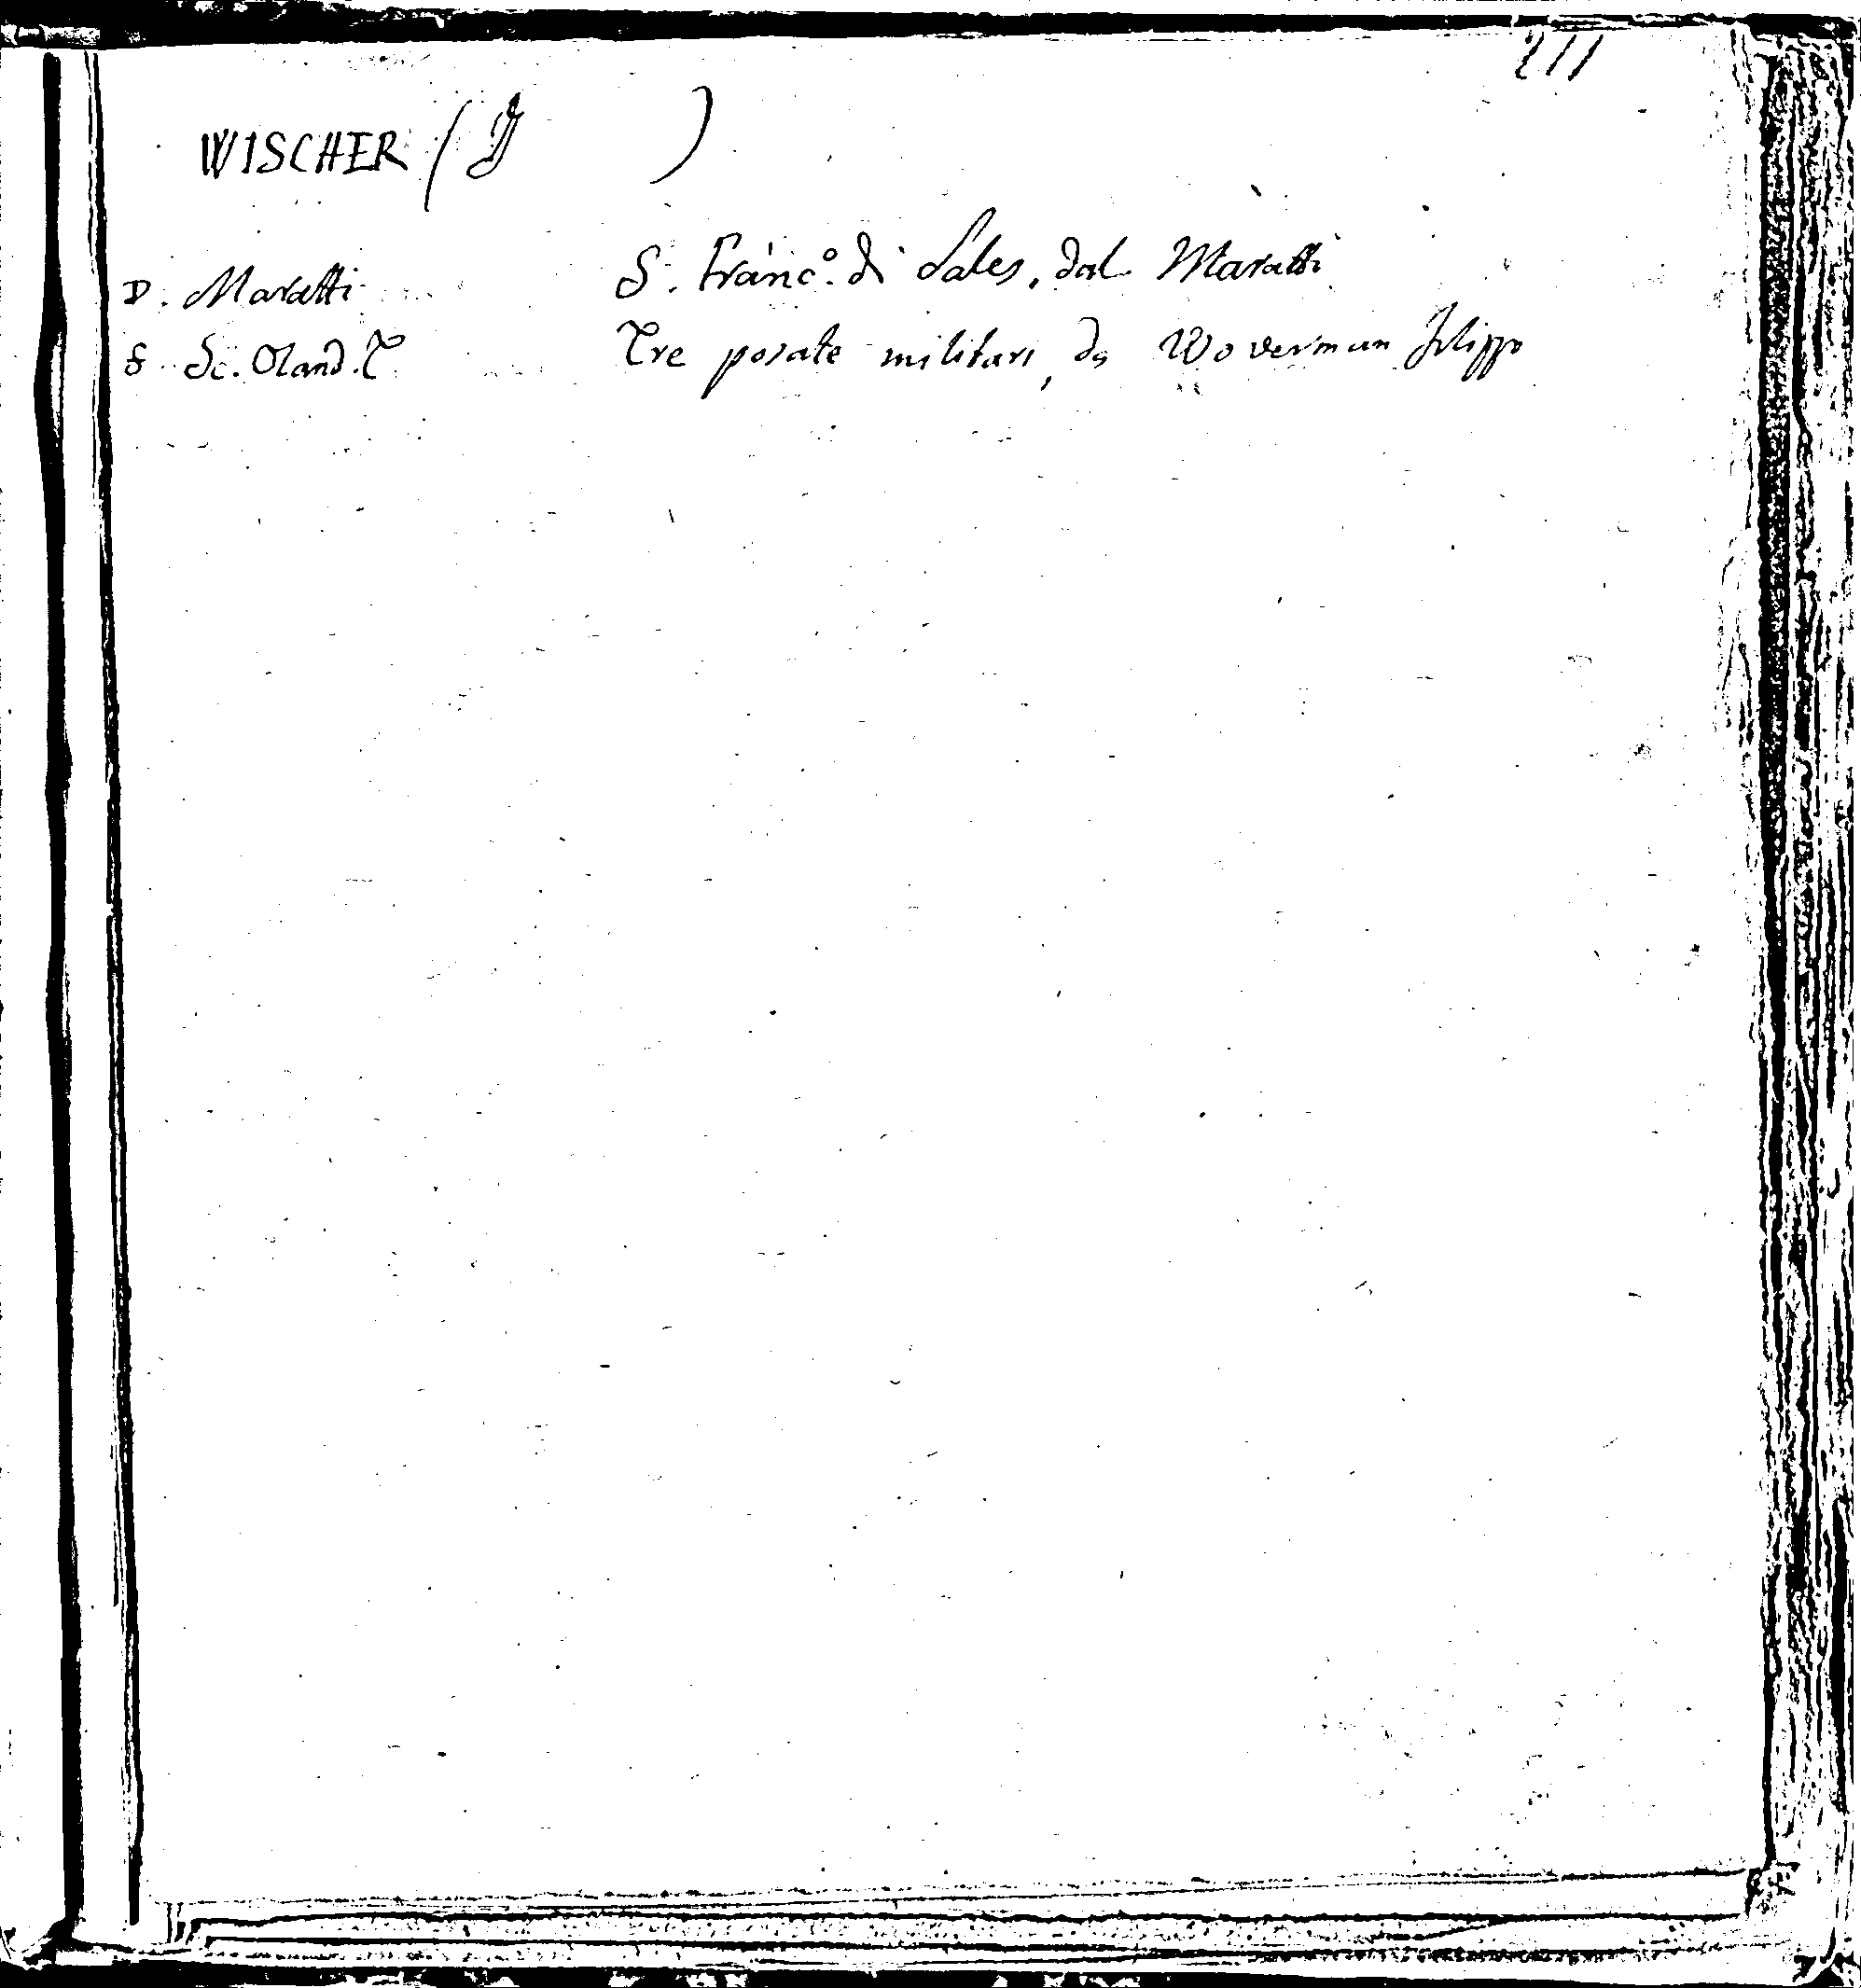 211
WISCHER (J )
D. Maratti S. Franc.º di Sales, dal Maratti
F. Sc. Oland. T. Tre posate militari, da Woverman Filippo